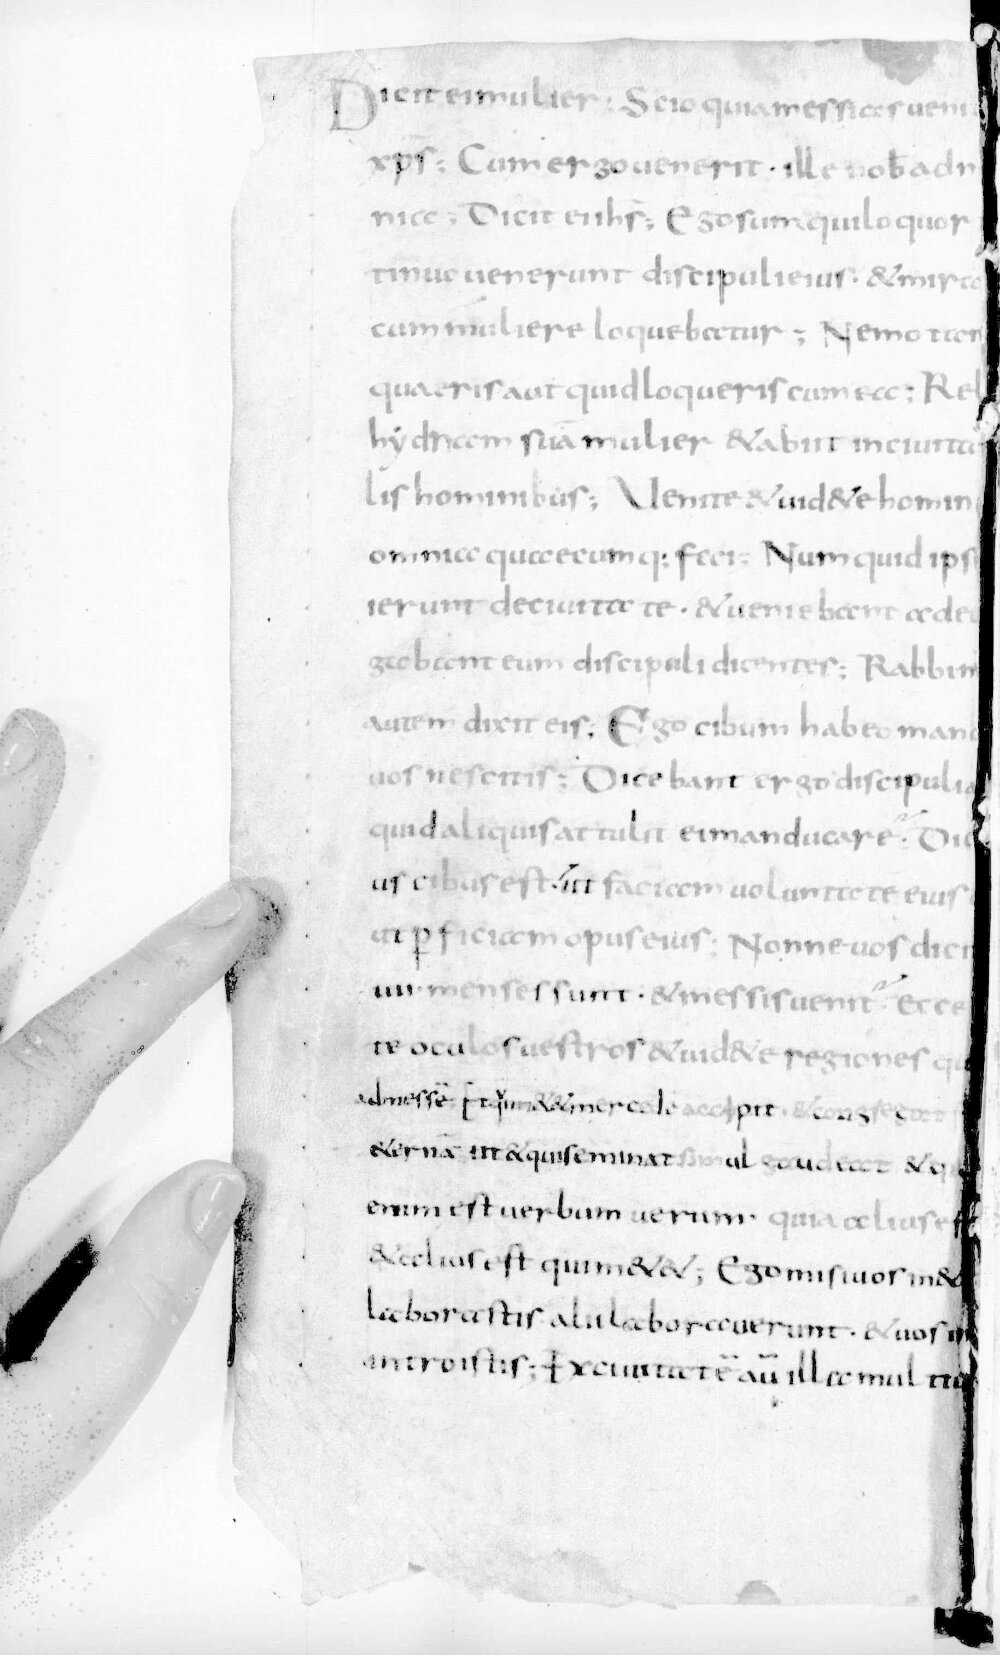 Dicit ei mulier; Scio quia messias veni
xp̄s; Cum ergo venerit · ille nob̄ adn
nica; Dicit ei ih̄s; Ego sum qui loquor
tinuo venerunt discipuli eius · & mira
cum muliere loquebatur; Nemo tam
quaeris aut quid loqueris cum ea; Rel
hydriam suā mulier & abiit in civita
lis hominibus; Venite & vid&e homin
omnia quaecumq: feci; Numquid ips
ierunt de civitate · & veniebant ad eu
gabant eum discipuli dicentes; Rabbi m
autem dixit eis; Ego cibum habeo mand
vos nescitis; Dicebant ergo discipuli a
quid aliquis attulit ei manducare · Dic
us cibus est · ut faciam voluntate eius
ut ꝑficiam opus eius; Nonne vos dici
iiii menses sunt · & messis venit · Ecce
te oculos vestros & vid&e regiones qu
ad messē Et qui m&& mercede accipit & congregat
&ernā ut & qui seminat simul gaudeat & q
enim est verbum verum · quia alius es
& alius est qui m&&; Ego misi vos m&
laborastis alii laboraverunt · & vos in
introistis; Ex civitate aū illa multi